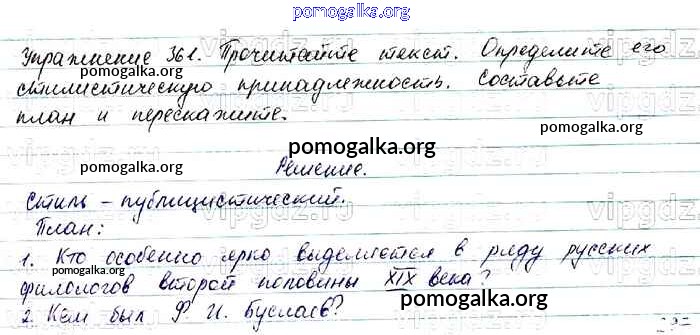 pomogalka.org
Упражнение 361. Прочитайте текст. Определите его
pomogalka.org
стилистическую принадлежность. Составьте
план и перескажите.
pomogalka.org
pomogalka.org
pomogalka.org
Решение.
Стиль – публицистический.
pomogalka.org
План:
1. Кто особенно ярко выделяется в ряду русских
pomogalka.org
филологов второй половины XIX века?
2. Кем был Ф. И. Буслаев?
pomogalka.org